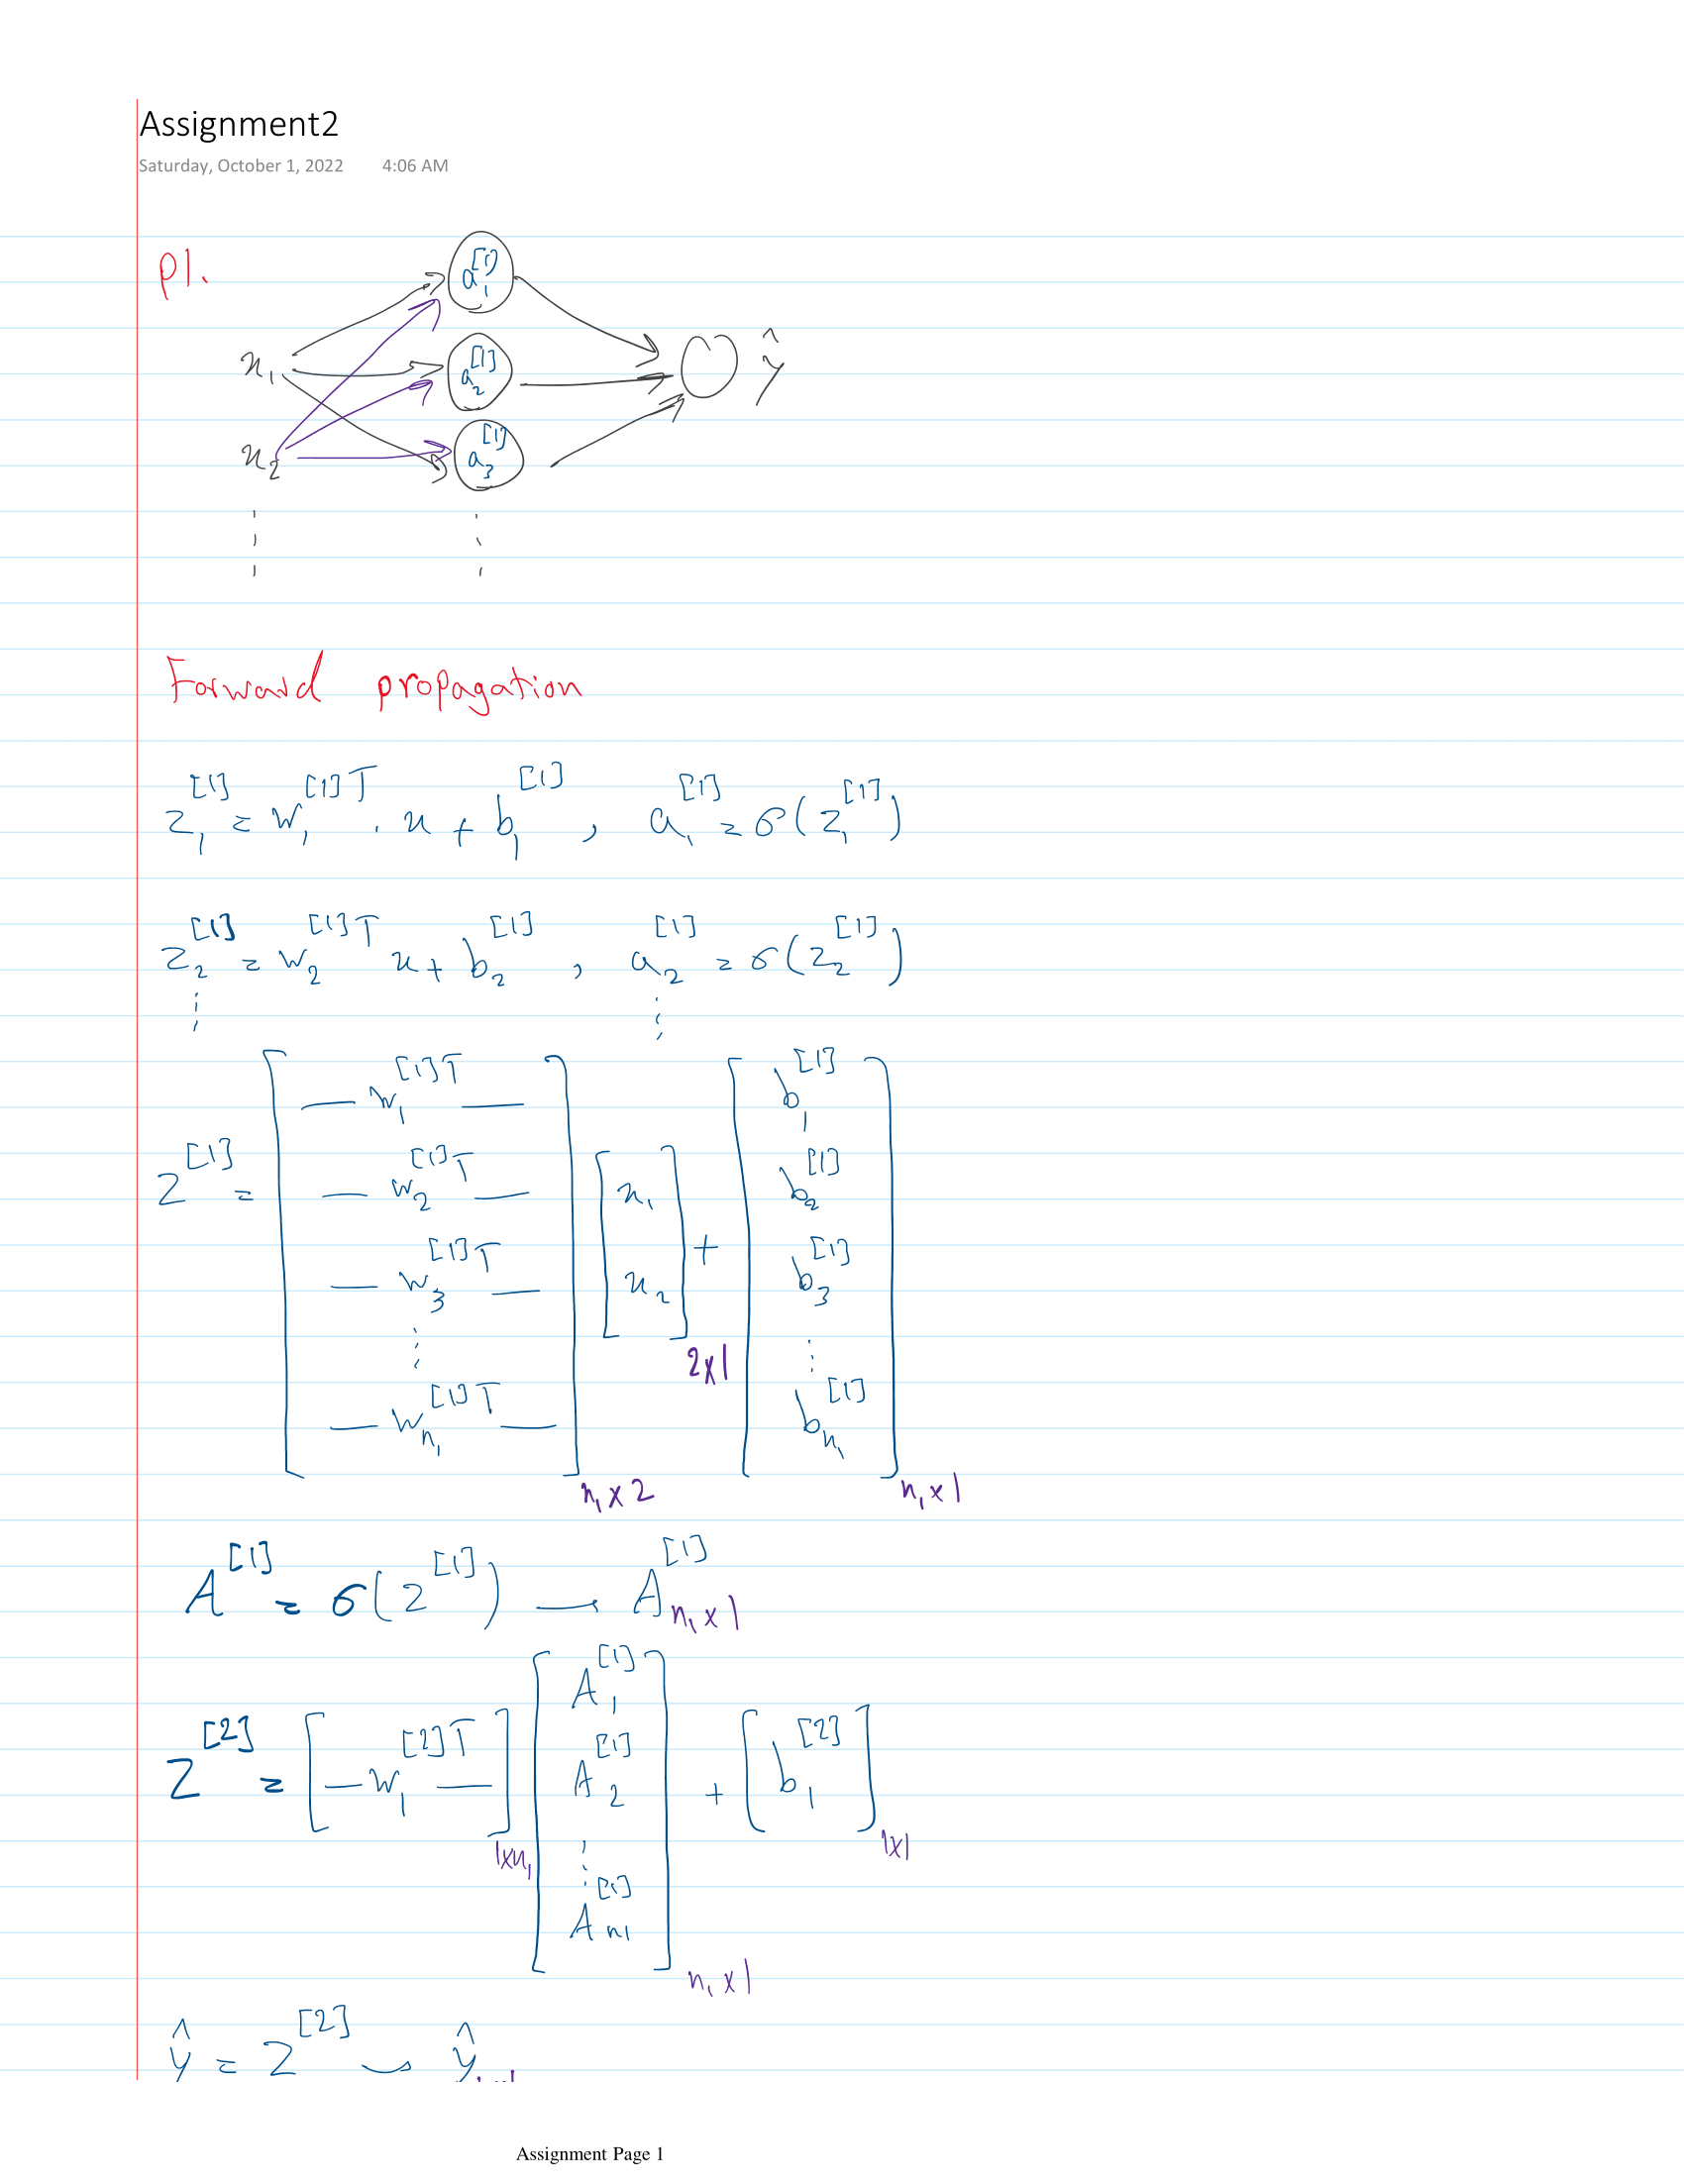 Assignment2
Saturday, October 1, 2022 4:06 AM
p1.
a₁^[1]
x₁ a₂^[1] ŷ
x₂ a₃^[1]
Forward propagation
z₁^[1] = w₁^[1]T . x + b₁^[1] , a₁^[1] = σ(z₁^[1])
z₂^[1] = w₂^[1]T x + b₂^[1] , a₂^[1] = σ(z₂^[1])
⋮ ⋮
Z^[1] = [ — w₁^[1]T — ; — w₂^[1]T — ; — w₃^[1]T — ; ⋮ ; — w_n₁^[1]T — ] n₁×2 [ x₁ ; x₂ ] 2×1 + [ b₁^[1] ; b₂^[1] ; b₃^[1] ; ⋮ ; b_n₁^[1] ] n₁×1
A^[1] = σ(z^[1]) → A^[1] n₁×1
Z^[2] = [ — w₁^[2]T — ] 1×n₁ [ A₁^[1] ; A₂^[1] ; ⋮ ; A_n1^[1] ] n₁×1 + [ b₁^[2] ] 1×1
ŷ = Z^[2] → ŷ
Assignment Page 1